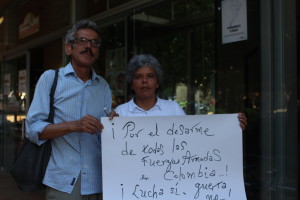 ¡ Por el desarme
de todas las
Fuerzas Armadas
de Colombia..!
¡ Lucha sí.. guerra
no..!